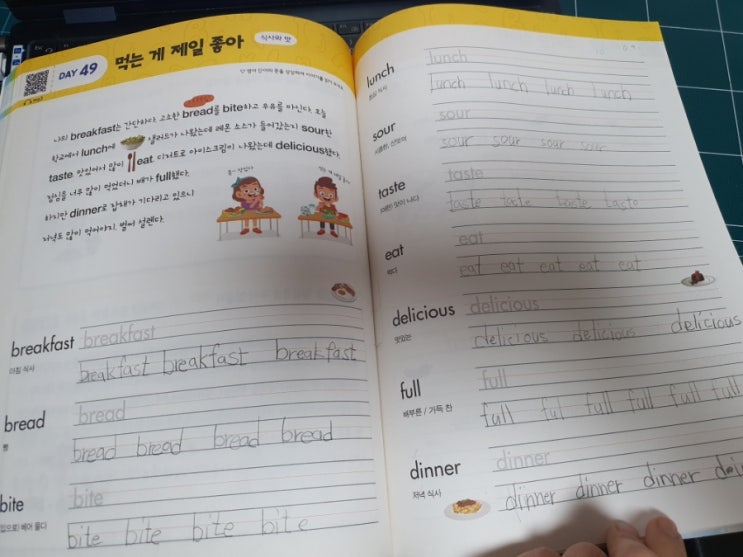 DAY 49 먹는 게 제일 좋아 식사와 맛
나의 breakfast는 간단하다. 고소한 bread를 bite하고 우유를 마신다. 오늘
학교에서 lunch에 샐러드가 나왔는데 레몬 소스가 들어갔는지 sour한
taste. 맛있어서 많이 eat. 디저트로 아이스크림이 나왔는데 delicious했다.
점심을 너무 많이 먹었더니 배가 full했다.
하지만 dinner로 잡채가 기다리고 있으니
저녁도 많이 먹어야지. 벌써 설렌다.
breakfast breakfast
아침 식사
breakfast breakfast breakfast
bread bread
빵
bread bread bread bread
bite bite
(입으로) 베어 물다
bite bite bite bite
lunch lunch
점심 식사
lunch lunch lunch lunch
sour sour
sour sour sour sour
taste taste
맛이 나다
taste taste taste taste
eat eat
먹다
eat eat eat eat eat
delicious delicious
맛있는
delicious delicious delicious
full full
배부른 / 가득 찬
full ful full full full full
dinner dinner
저녁 식사
dinner dinner dinner